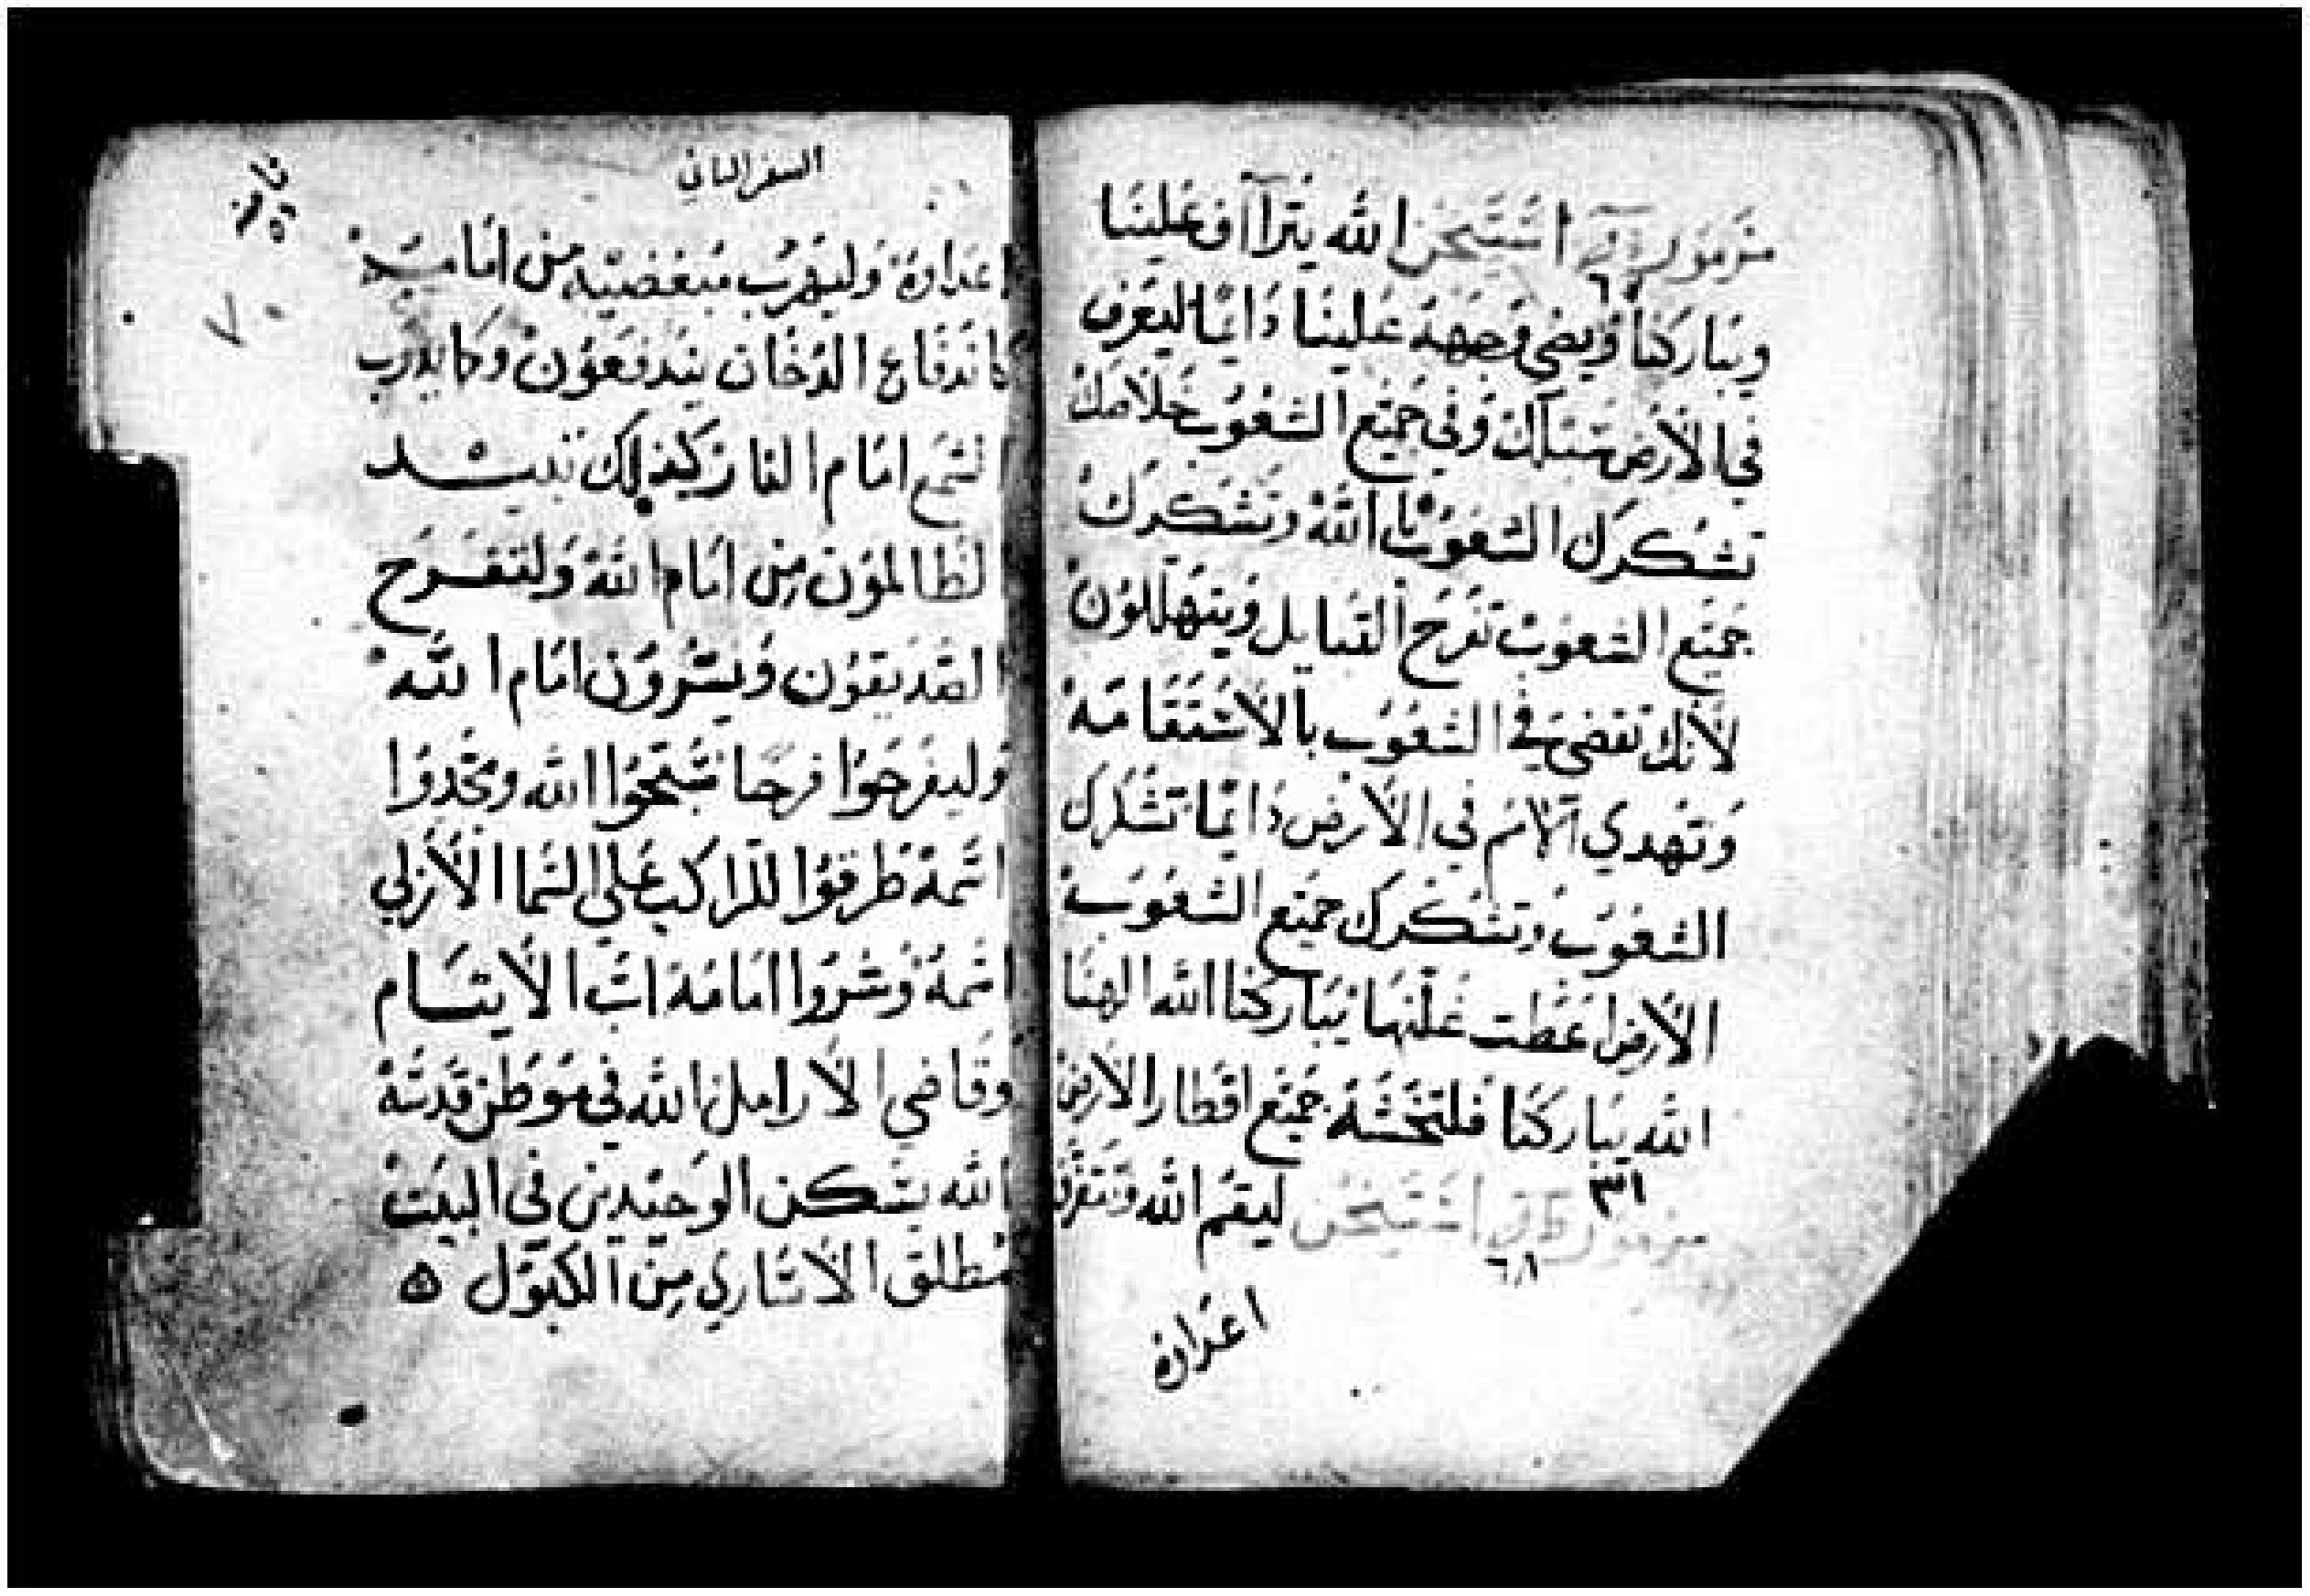 مزمور استيخن الله يترااف علينا
٦٧
ويباركنا ويضي وجهه علينا دايمًا ليعرف
في الأرض سبيلك وفي جميع الشعوب خلاصك
تشكرك الشعوب يا الله وتشكرك
جميع الشعوب تفرح القبايل ويتهللون
لأنك تقضي في الشعوب بالاستقامة
وتهدي الامم في الأرض دايمًا تشكرك
الشعوب وتشكرك جميع الشعوب
الأرض اعطت غلتها يباركنا الله الهنا
الله يباركنا فلتخشه جميع اقطار الارض
مزمور استيخن ليقم الله وتتفرق
٦٨
اعداوه
السفر الثاني
ثامنة
٧٠
اعداوه وليهرب مبغضيه من امامه
كاندفاع الدخان يندفعون وكما يذوب
الشمع امام النار كذلك تبيد
الظالمون من امام الله ولتفرح
الصديقون ويسرون امام الله
وليفرحوا فرحًا سبحوا الله ومجدوا
اسمه طرقوا للراكب على السما الأزلي
اسمه وسروا امامه اب الأيتام
وقاضي الأرامل الله في موطن قدسه
الله يسكن الوحيدين في البيت
مطلق الأساري من الكبول ٥